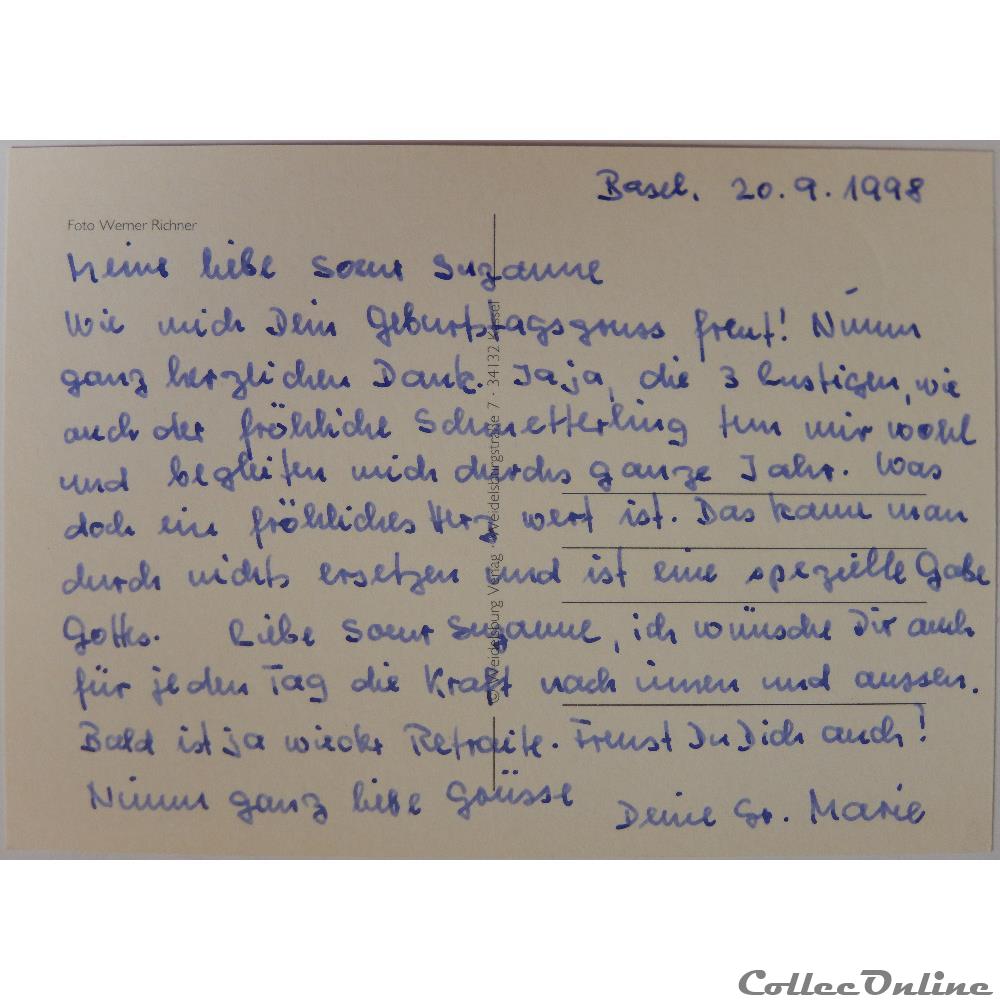 Basel, 20.9.1998
Foto Werner Richner
Meine liebe Soeur Suzanne
Wie mich Dein Geburtstagsgruss freut! Nimm
ganz herzlichen Dank. Jaja, die 3 lustigen, wie
auch der fröhliche Schmetterling tun mir wohl
und begleiten mich durchs ganze Jahr. Was
doch ein fröhliches Herz wert ist. Das kann man
durch nichts ersetzen und ist eine spezielle Gabe
Gottes. Liebe Soeur Suzanne, ich wünsche Dir auch
für jeden Tag die Kraft nach innen und aussen.
Bald ist ja wieder Retraite. Freust Du Dich auch!
Nimm ganz liebe Grüsse
Deine Sr. Marie
© Weidelsburg Verlag · Weidelsburgstraße 7 · 34132 Kassel
CollecOnline